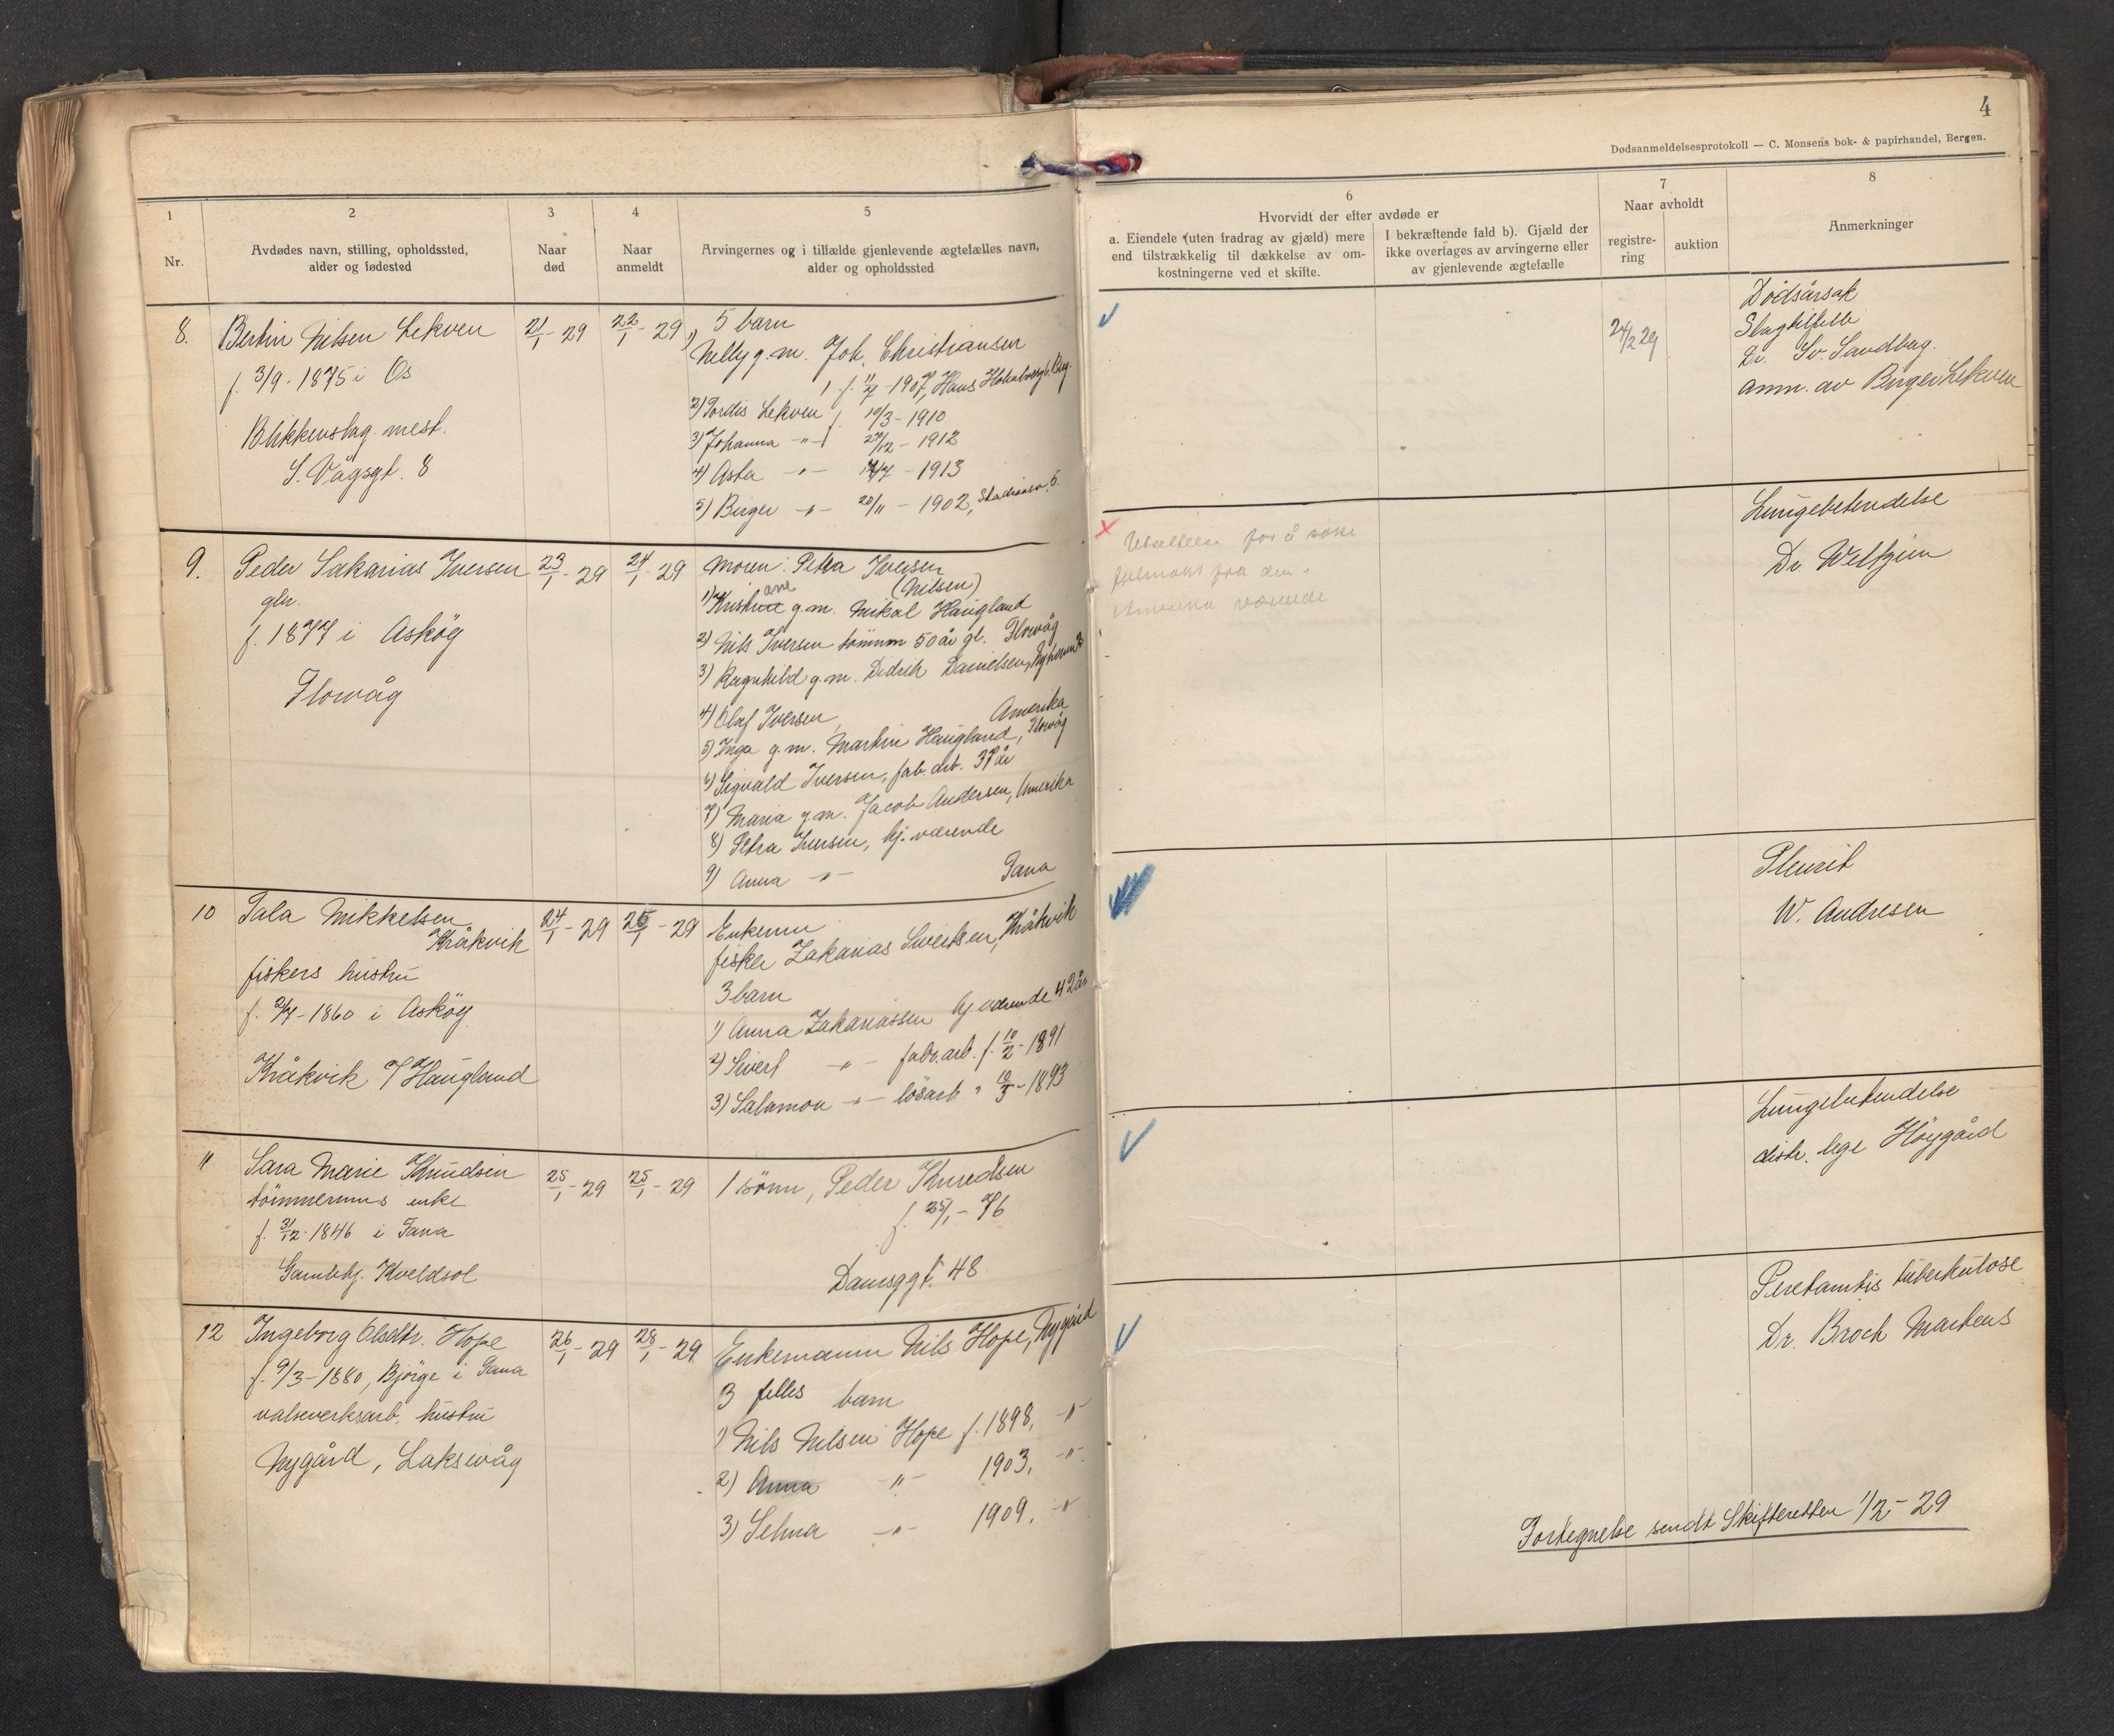 4
Dødsanmeldelsesprotokoll — C. Monsens bok- & papirhandel, Bergen.
1
Nr.
2
Avdødes navn, stilling, opholdssted,
alder og fødested
3
Naar
død
4
Naar
anmeldt
5
Arvingernes og i tilfælde gjenlevende ægtefælles navn,
alder og opholdssted
6
Hvorvidt der efter avdøde er
a. Eiendele (uten fradrag av gjæld) mere
end tilstrækkelig til dækkelse av om-
kostningerne ved et skifte.
I bekræftende fald b). Gjæld der
ikke overtages av arvingerne eller
av gjenlevende ægtefælle
7
Naar avholdt
registre-
ring
auktion
8
Anmerkninger
8.
Bertin Nilsen Lekven
f. 3/9 - 1875 i Os
Blikkenslag. mest.
S. Vågsgt. 8
21/1 - 29
22/1 - 29
5 barn
1) Nelly g.m. Joh. Christiansen
f. 11/7 - 1907, Hans
2) Tordis Lekven f. 10/3 - 1910
3) Johanna -"- f 27/12 - 1912
4) Asta -"- 14/7 - 1913
5) Birger -"- 20/11 - 1902, 5.
24/2 29
Dødsårsak
Slagtilfelle
Dr. Sv. Sandberg.
anm. av Birger Lekven
9.
Peder Sakarias Iversen
f. 1877 i Askøy
Florvåg
23/1 - 29
24/1 - 29
Moren: Petra Iversen
(Nilsen)
1) Kristiane g.m. Mikal Haugland
2) Nils Iversen tømmm 50 år gl. Florvåg
3) Ragnhild g.m. Didrik Danielsen,
4) Olaf Iversen, Amerika
5) Inga g.m. Martin Haugland, Florvåg
6) Sigvald Iversen, fab. arb. 37 år
7) Maria g.m. Jacob Andersen, Amerika
8) Petra Iversen, hj. værende
9) Anna -"- Fana
Utsettelse for å søke
fullmakt fra den i
Amerika værende
Lungebetendelse
Dr. Weltzien
10
Sala Mikkelsen
Kråkvik
fiskers hustru
f. 2/7 - 1860 i Askøy
Kråkvik s/Haugland
24/1 - 29
26/1 - 29
Enkemn
fisker Zakarias Sivertsen, Kråkvik
3 barn
1) Anna Zakariassen hj. værende 42 år
2) Sivert -"- fabr. arb. f. 10/2 - 1891
3) Salamon -"- løsarb " 10/3 - 1893
Pleurit
W. Andresen
11
Sara Marie Knudsen
tømmermns enke
f. 31/12 1846 i Fana
Gamlehj. Kveldsol
25/1 - 29
25/1 - 29
1 sønn, Peder Knudsen
f. 25/1 - 76
Damsggt. 48
Lungebetendelse
distr. lege Høygård
12
Ingeborg Olsdtr. Hope
f. 9/3 - 1880, Bjørge i Fana
valseverksarb. hustru
Nygård, Laksevåg
26/1 - 29
28/1 - 29
Enkemann Nils Hope, Nygård
3 felles barn
1) Nils Nilsen Hope f. 1898, -"-
2) Anna -"- 1903, -"-
3) Selma -"- 1909, -"-
Peretanitis tuberkuløse
Dr. Broch Martens
Fortegnelse sendt Skifteretten 1/2 - 29